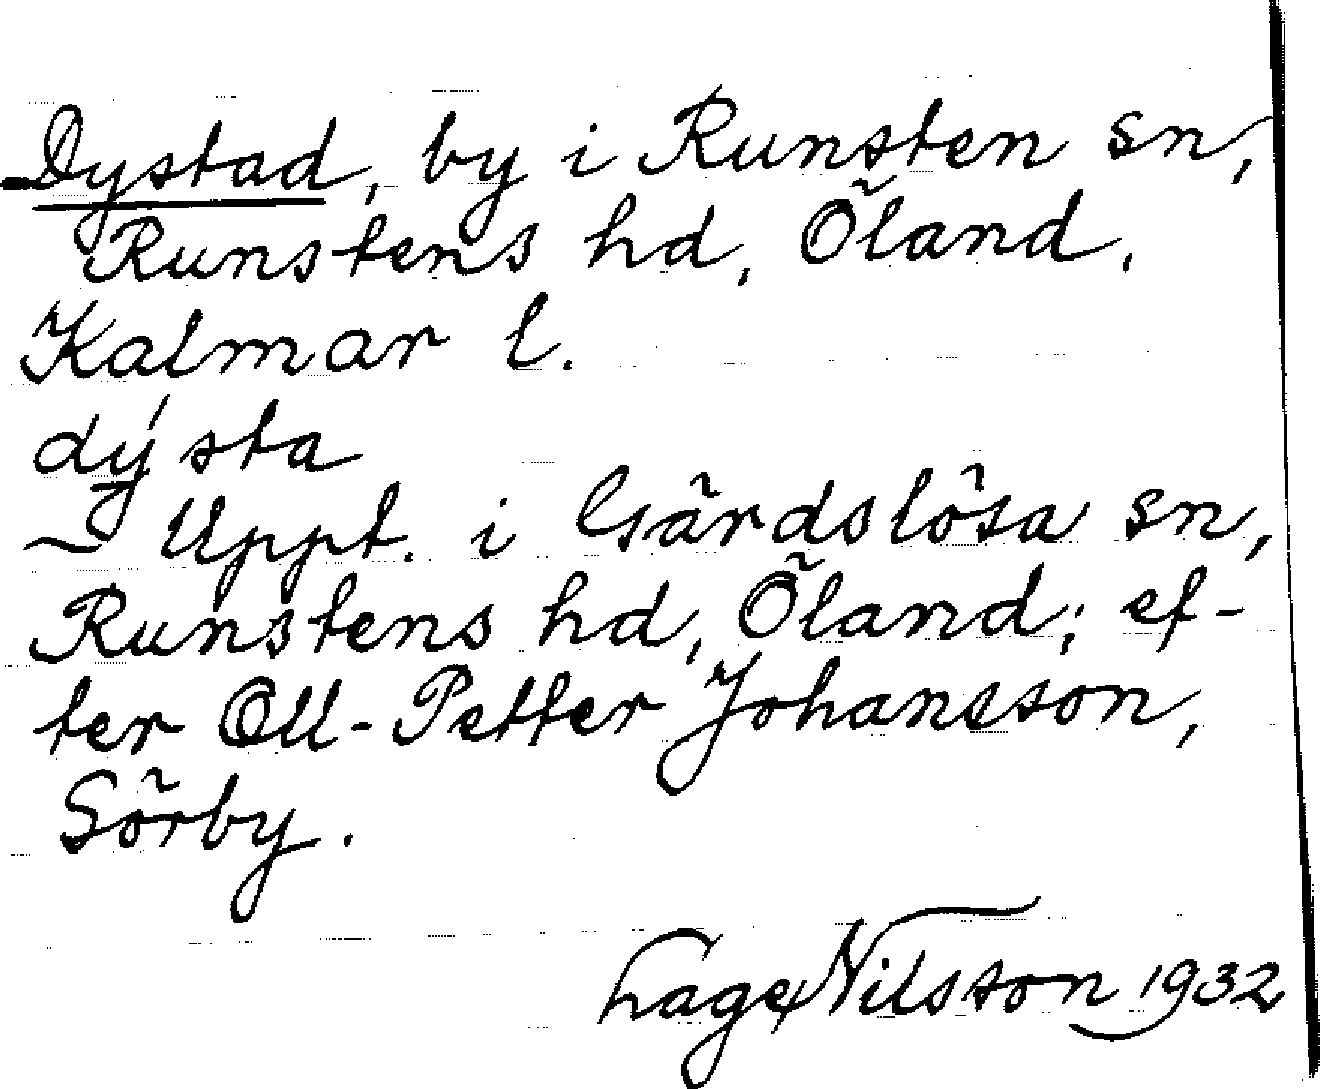 Dystad, by i Runsten sn,
Runstens hd, Öland,
Kalmar l.
dýsta
~ Uppt. i Gärdslösa sn,
Runstens hd, Öland; ef-
ter Oll-Petter Johansson,
Sörby.
Lage Nilsson 1932